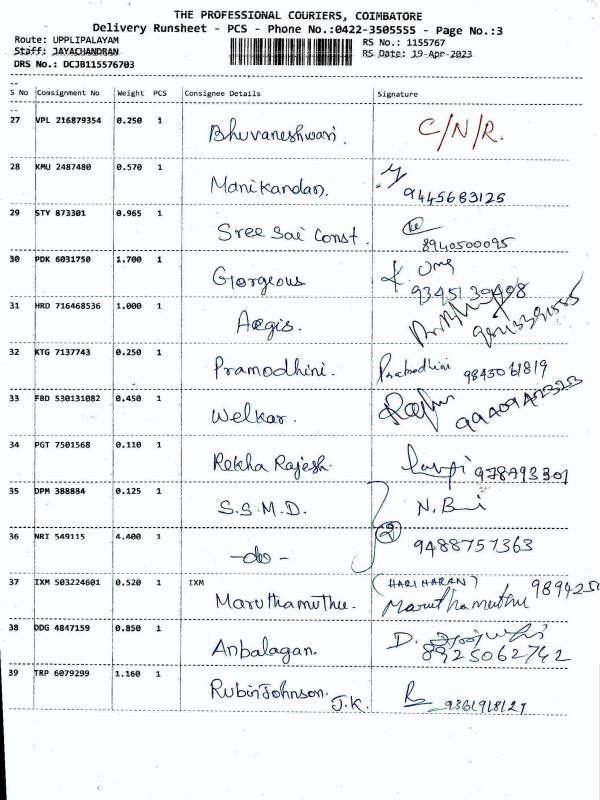 THE PROFESSIONAL COURIERS, COIMBATORE
Delivery Runsheet - PCS - Phone No.:0422-3505555 - Page No.:3
Route: UPPLIPALAYAM RS No.: 1155767
Staff: JAYACHANDRAN RS Date: 19-Apr-2023
DRS No.: DCJB115576703
S No Consignment No Weight PCS Consignee Details Signature
27 VPL 216879354 0.250 1 Bhuvaneshwari. C/N/R.
28 KMU 2487480 0.570 1 Manikandan. 9445683125
29 STY 873301 0.965 1 Sree Sai Const. 8940500095
30 PDK 6031750 1.700 1 Giorgeous
31 HRD 716468536 1.000 1 Aegis.
32 KTG 7137743 0.250 1 Pramodhini. Pramodhini 9843061819
33 FBD 530131082 0.450 1 Welkar.
34 PGT 7501568 0.110 1 Rekha Rajesh.
35 DPM 388884 0.125 1 S.S.M.D.
36 NRI 549115 4.400 1 -do- 2 9488757363
37 IXM 503224601 0.520 1 IXM (HARIHARAN)
Maruthamuthu. Maruthamuthu 989425
38 DDG 4847159 0.850 1 Anbalagan. D.
8925062742
39 TRP 6079299 1.160 1 Rubin Johnson. J.K. 9361918127